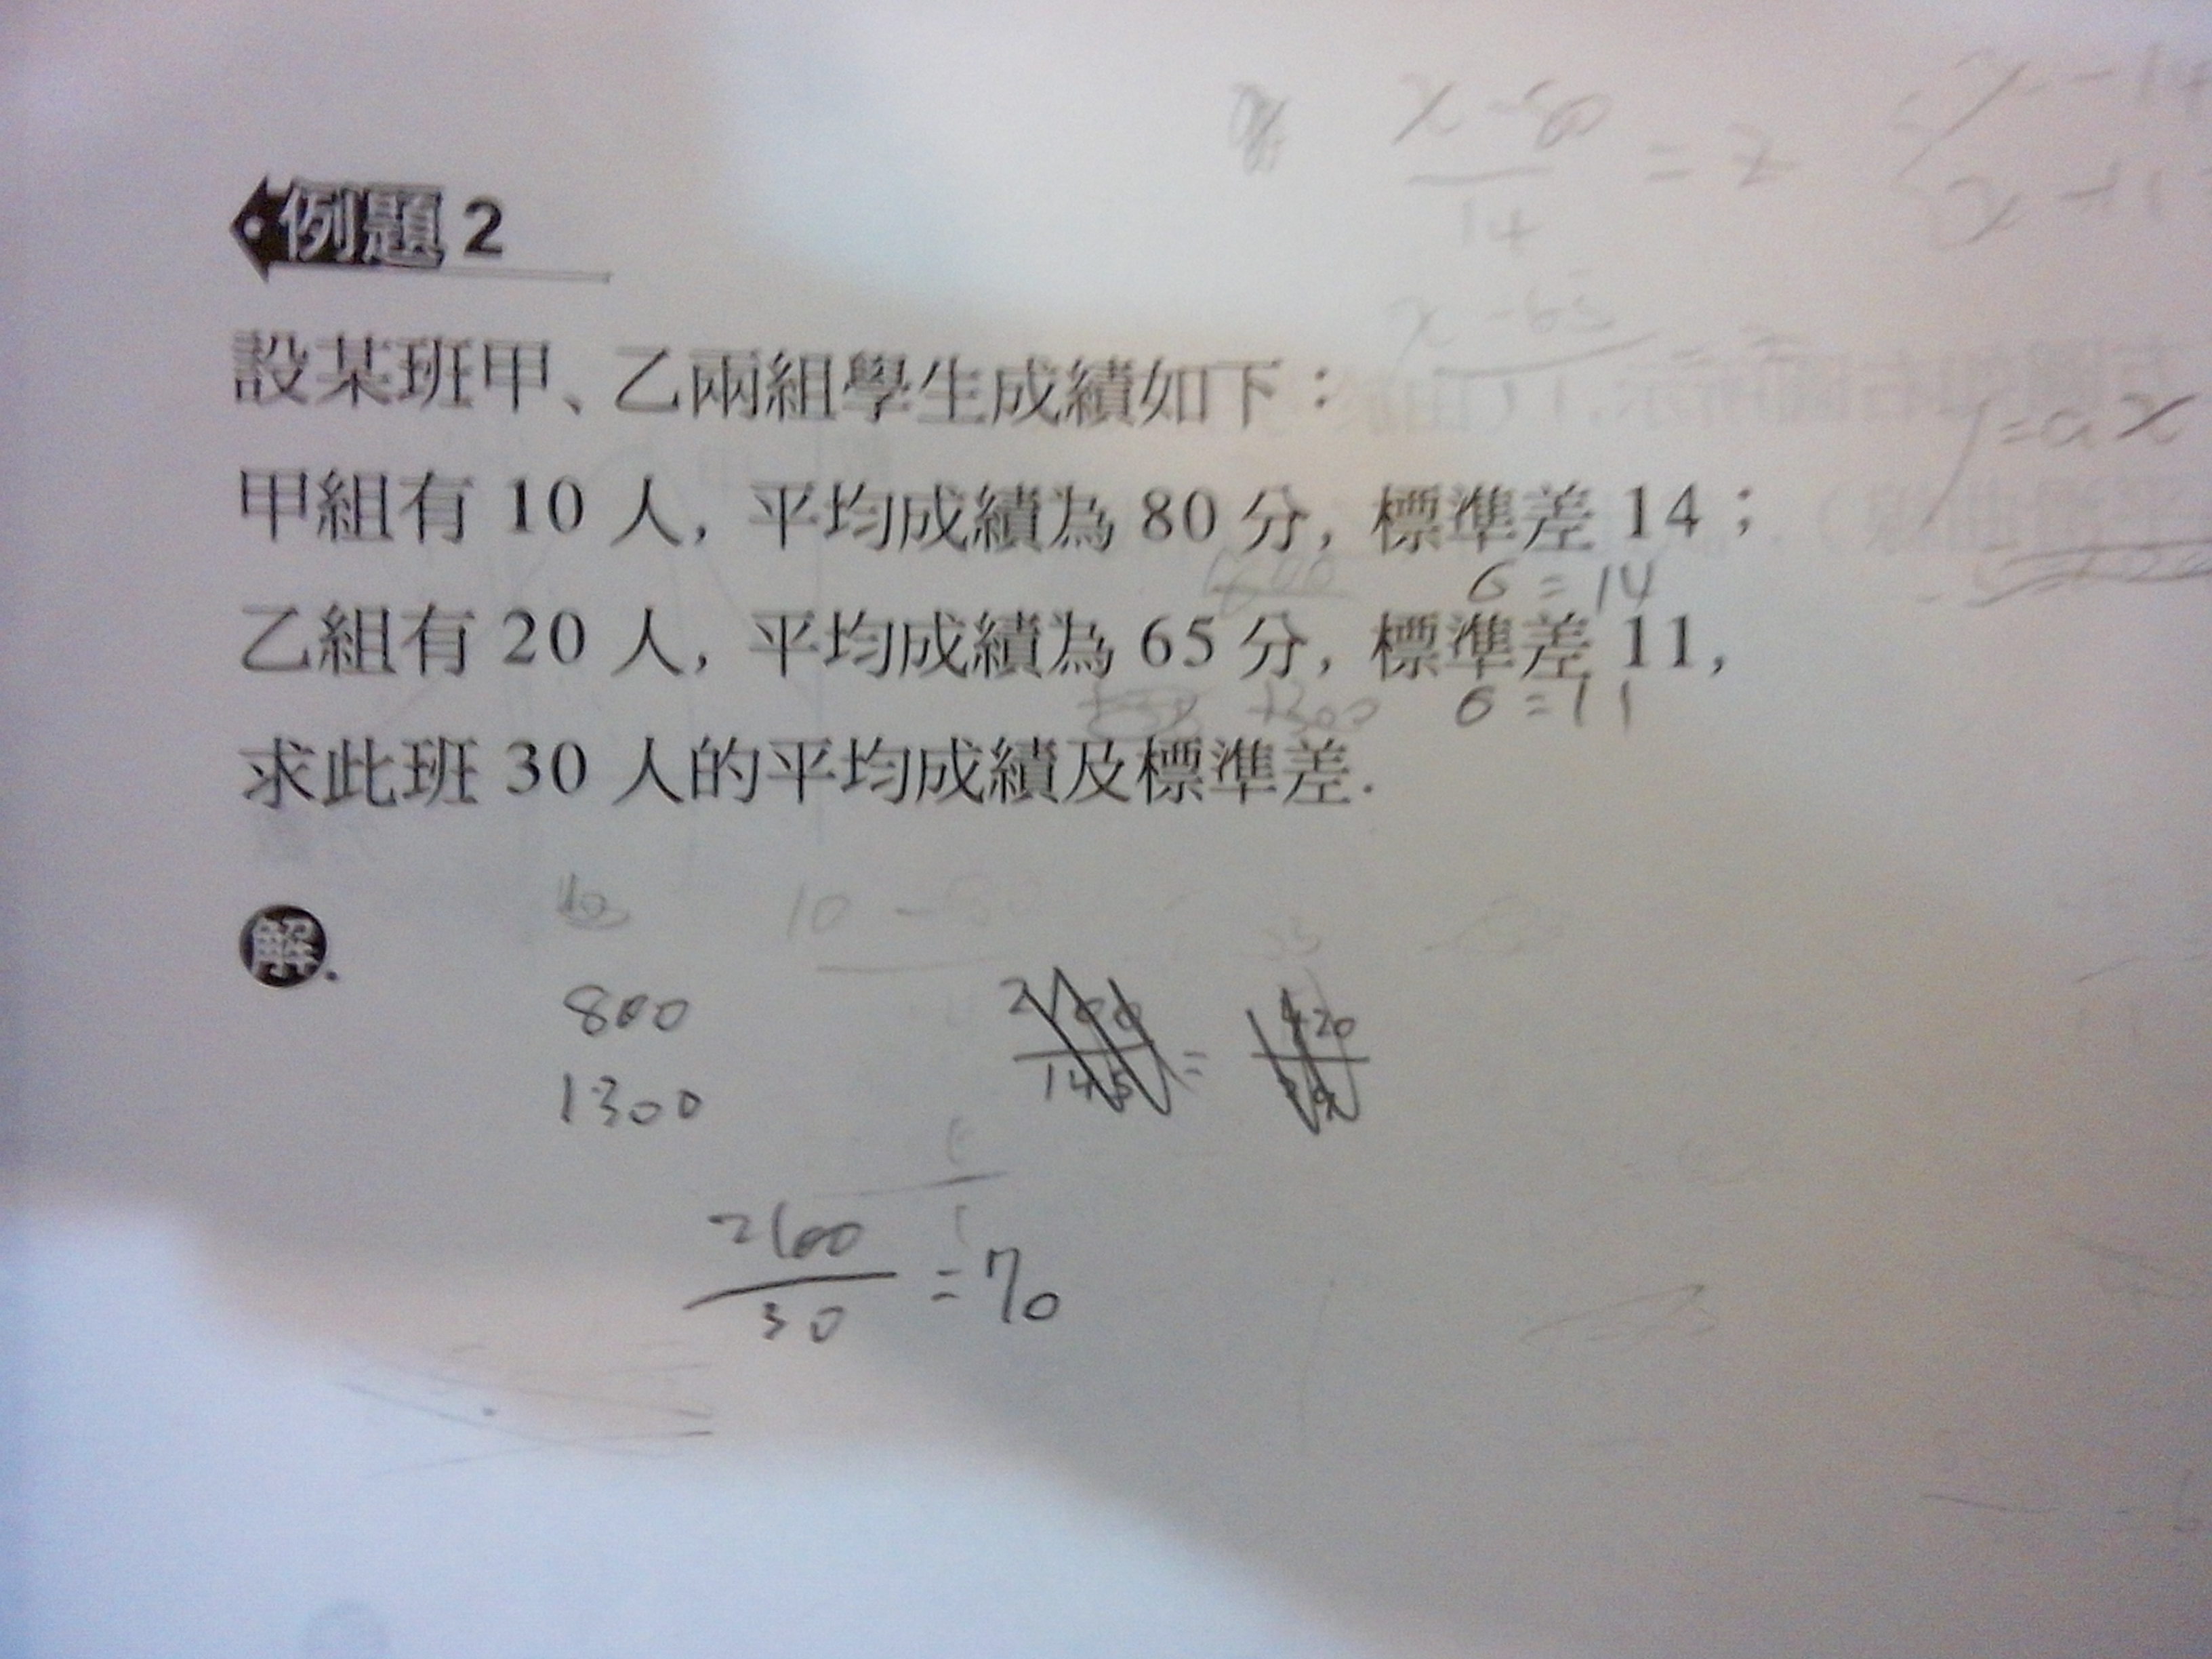 例題 2
x-80
14
= z
x-65
設某班甲、乙兩組學生成績如下：
甲組有 10 人, 平均成績為 80 分, 標準差 14；
σ = 14
乙組有 20 人, 平均成績為 65 分, 標準差 11,
1300 σ = 11
求此班 30 人的平均成績及標準差.
解.
10 -
800
1300
2100
30
= 70